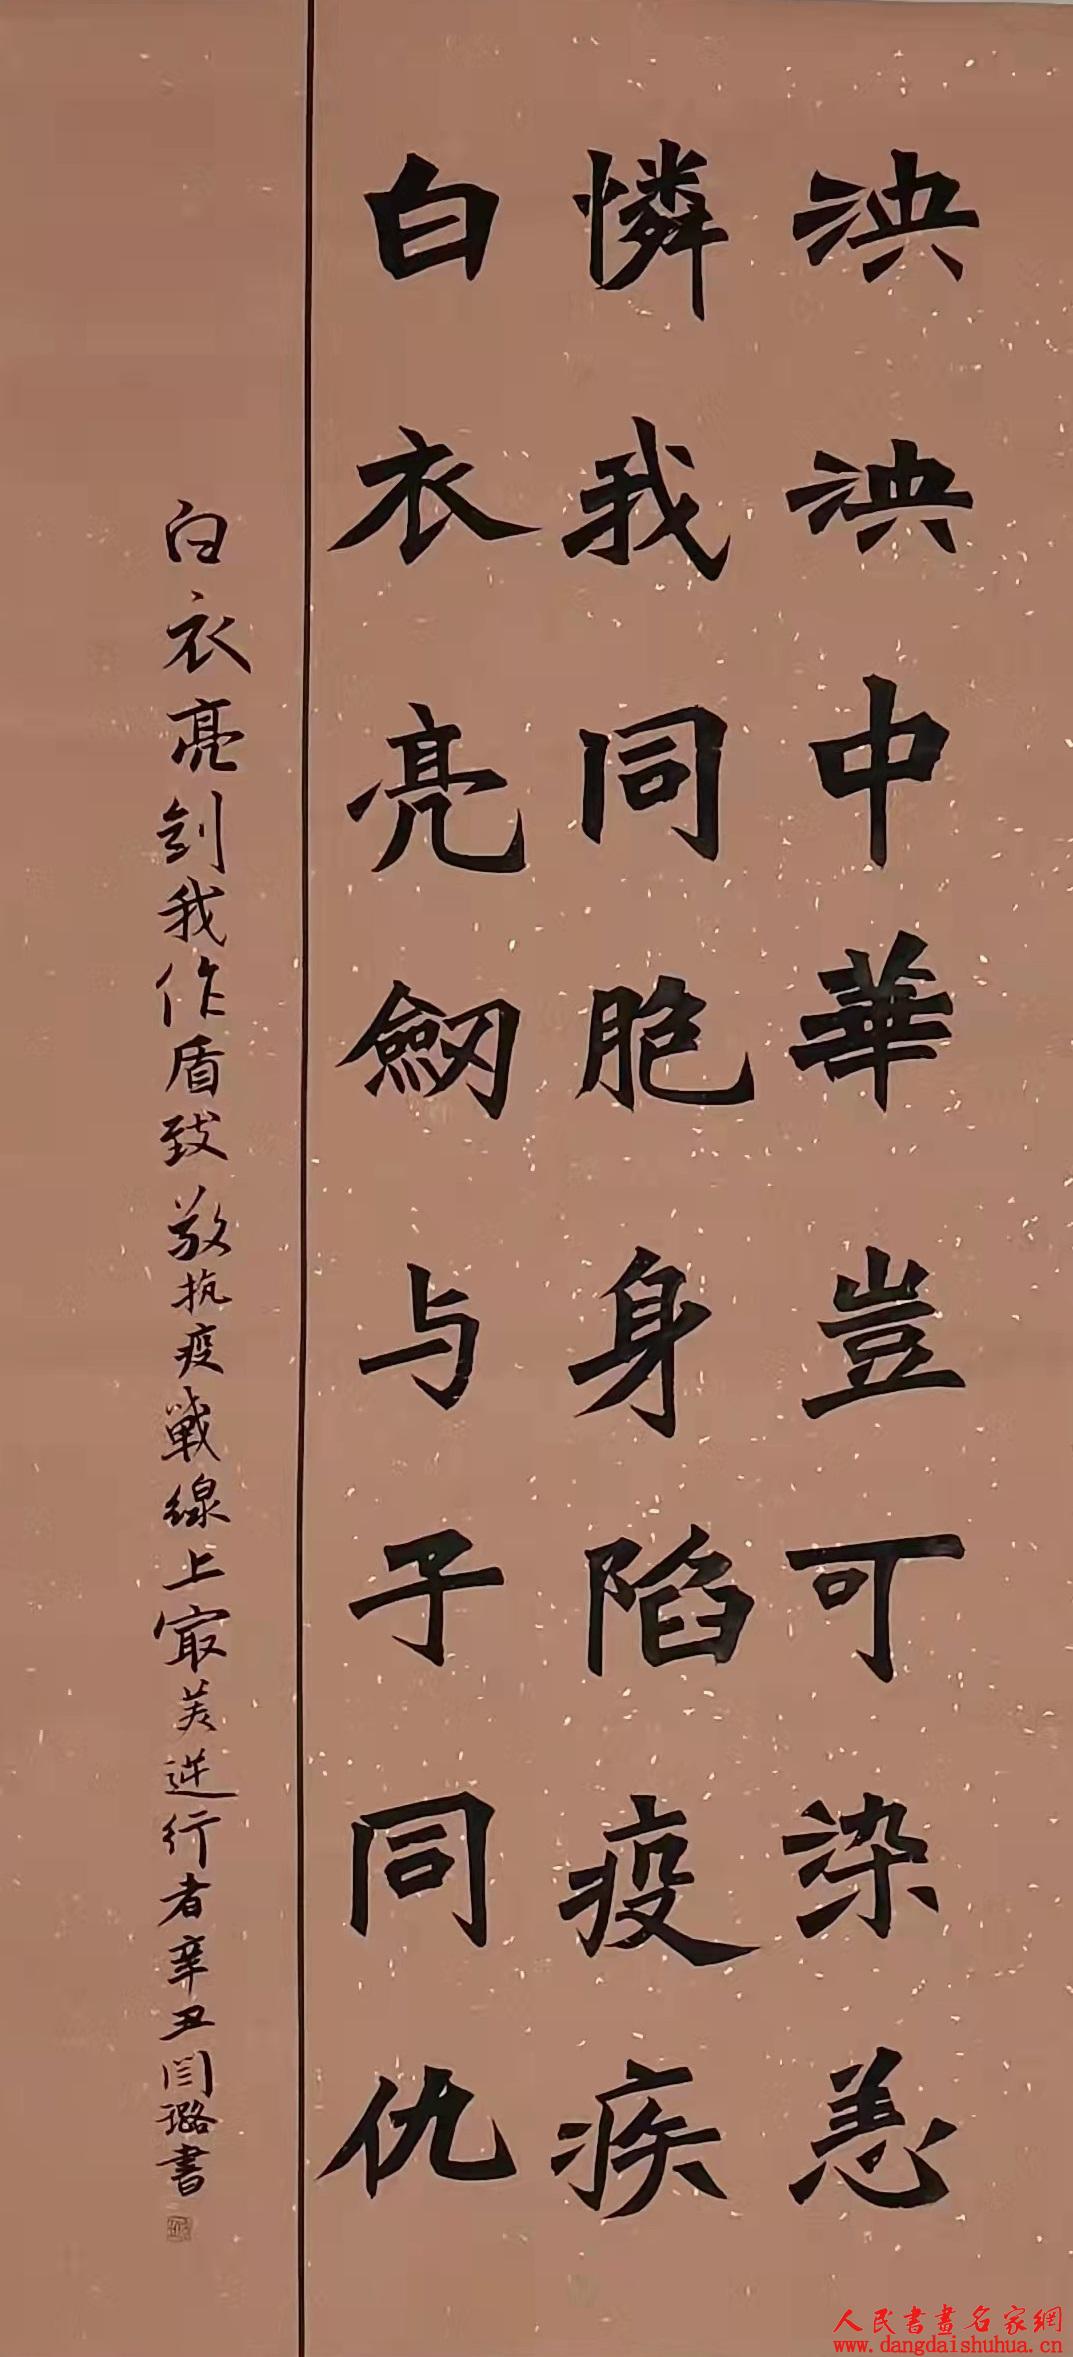 泱泱中華豈可染恙
憐我同胞身陷疫疾
白衣亮劒与子同仇
白衣亮剑我作盾致敬抗疫戰線上最美逆行者辛丑闫璐書
人民書畫名家網
www.dangdaishuhua.cn